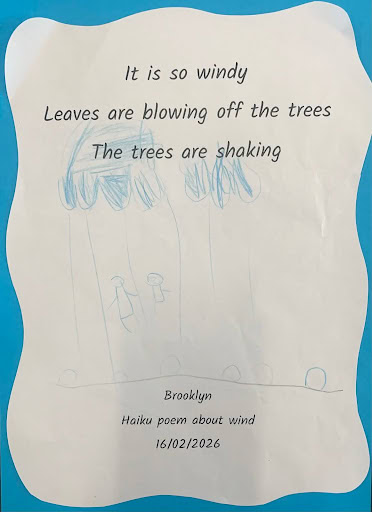 It is so windy
Leaves are blowing off the trees
The trees are shaking
Brooklyn
Haiku poem about wind
16/02/2026